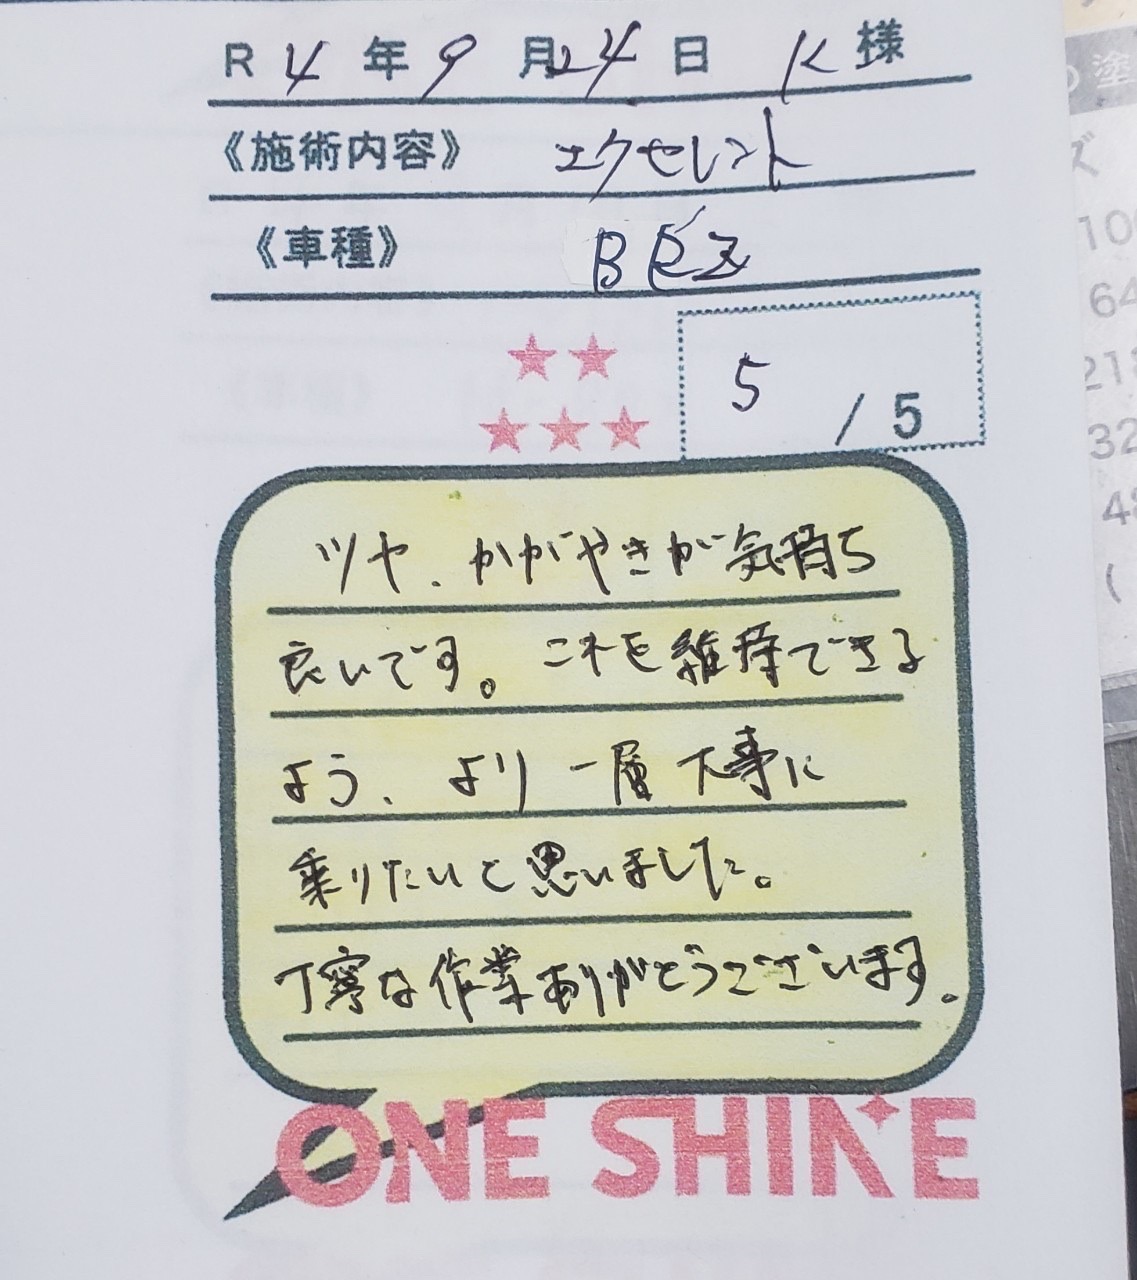 R 4 年 9 月 24 日 K 様
《施術内容》 エクセレント
《車種》 BRZ
★★
★★★
5 / 5
ツヤ、かがやきが気持ち
良いです。これを維持できる
よう、より一層大事に
乗りたいと思いました。
丁寧な作業ありがとうございます。
ONE SHINE
塗
ズ
10
64
218
32
48
(